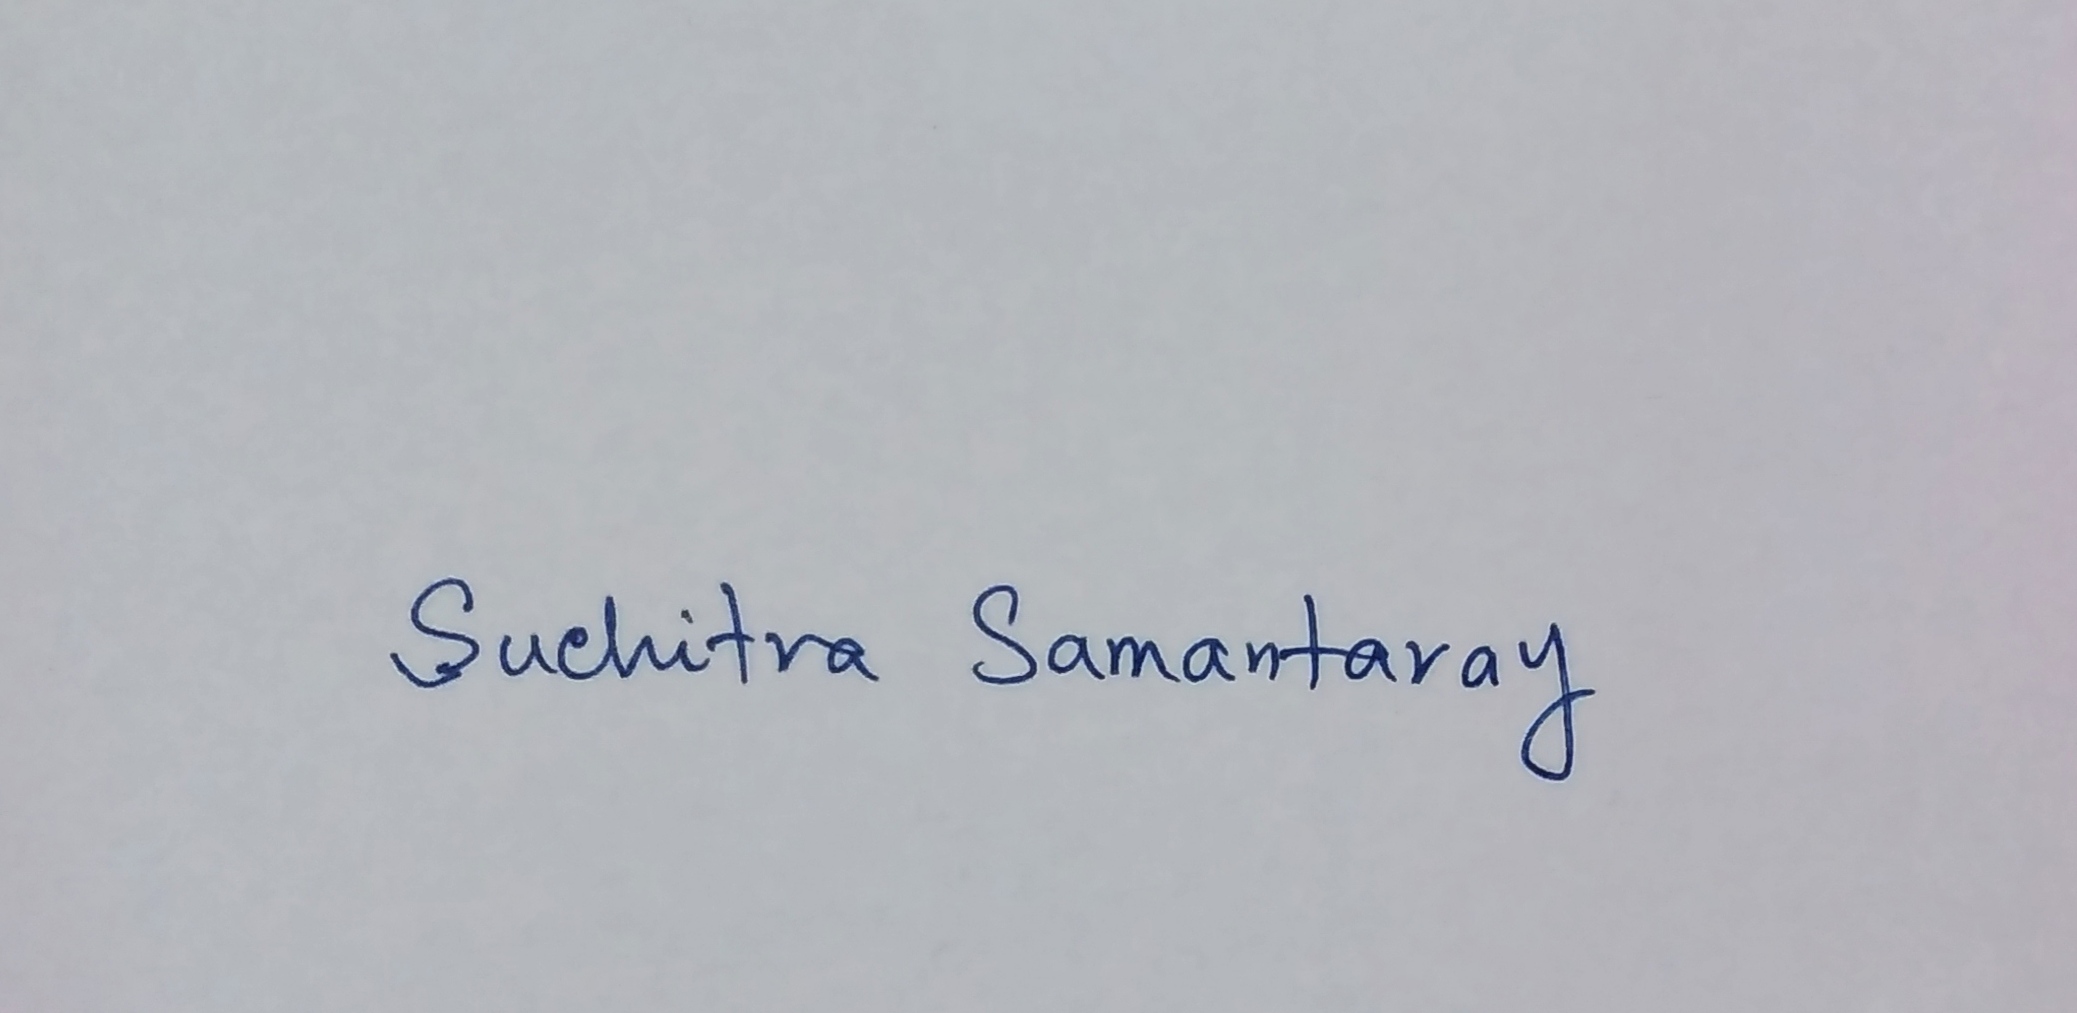 Suchitra Samantaray